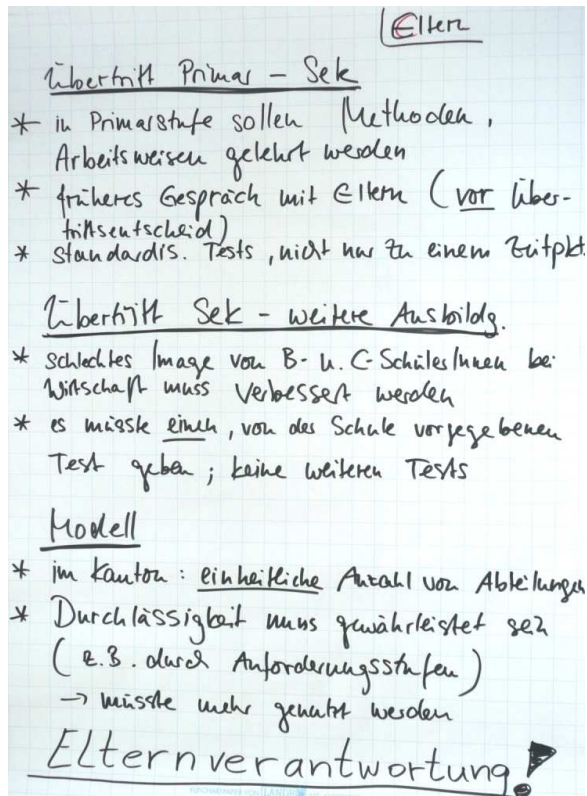 Eltern
Übertritt Primar – Sek
* in Primarstufe sollen Methoden,
Arbeitsweisen gelehrt werden
* früheres Gespräch mit Eltern (vor Über-
trittsentscheid)
* standardis. Tests, nicht nur zu einem Zeitpkt.
Übertritt Sek – weitere Ausbildg.
* schlechtes Image von B- u. C-SchülerInnen bei
Wirtschaft muss verbessert werden
* es müsste einen, von der Schule vorgegebenen
Test geben; keine weiteren Tests
Modell
* im Kanton: einheitliche Anzahl von Abteilungen
* Durchlässigkeit muss gewährleistet sein
(z.B. durch Anforderungsstufen)
→ müsste mehr genutzt werden
Elternverantwortung!